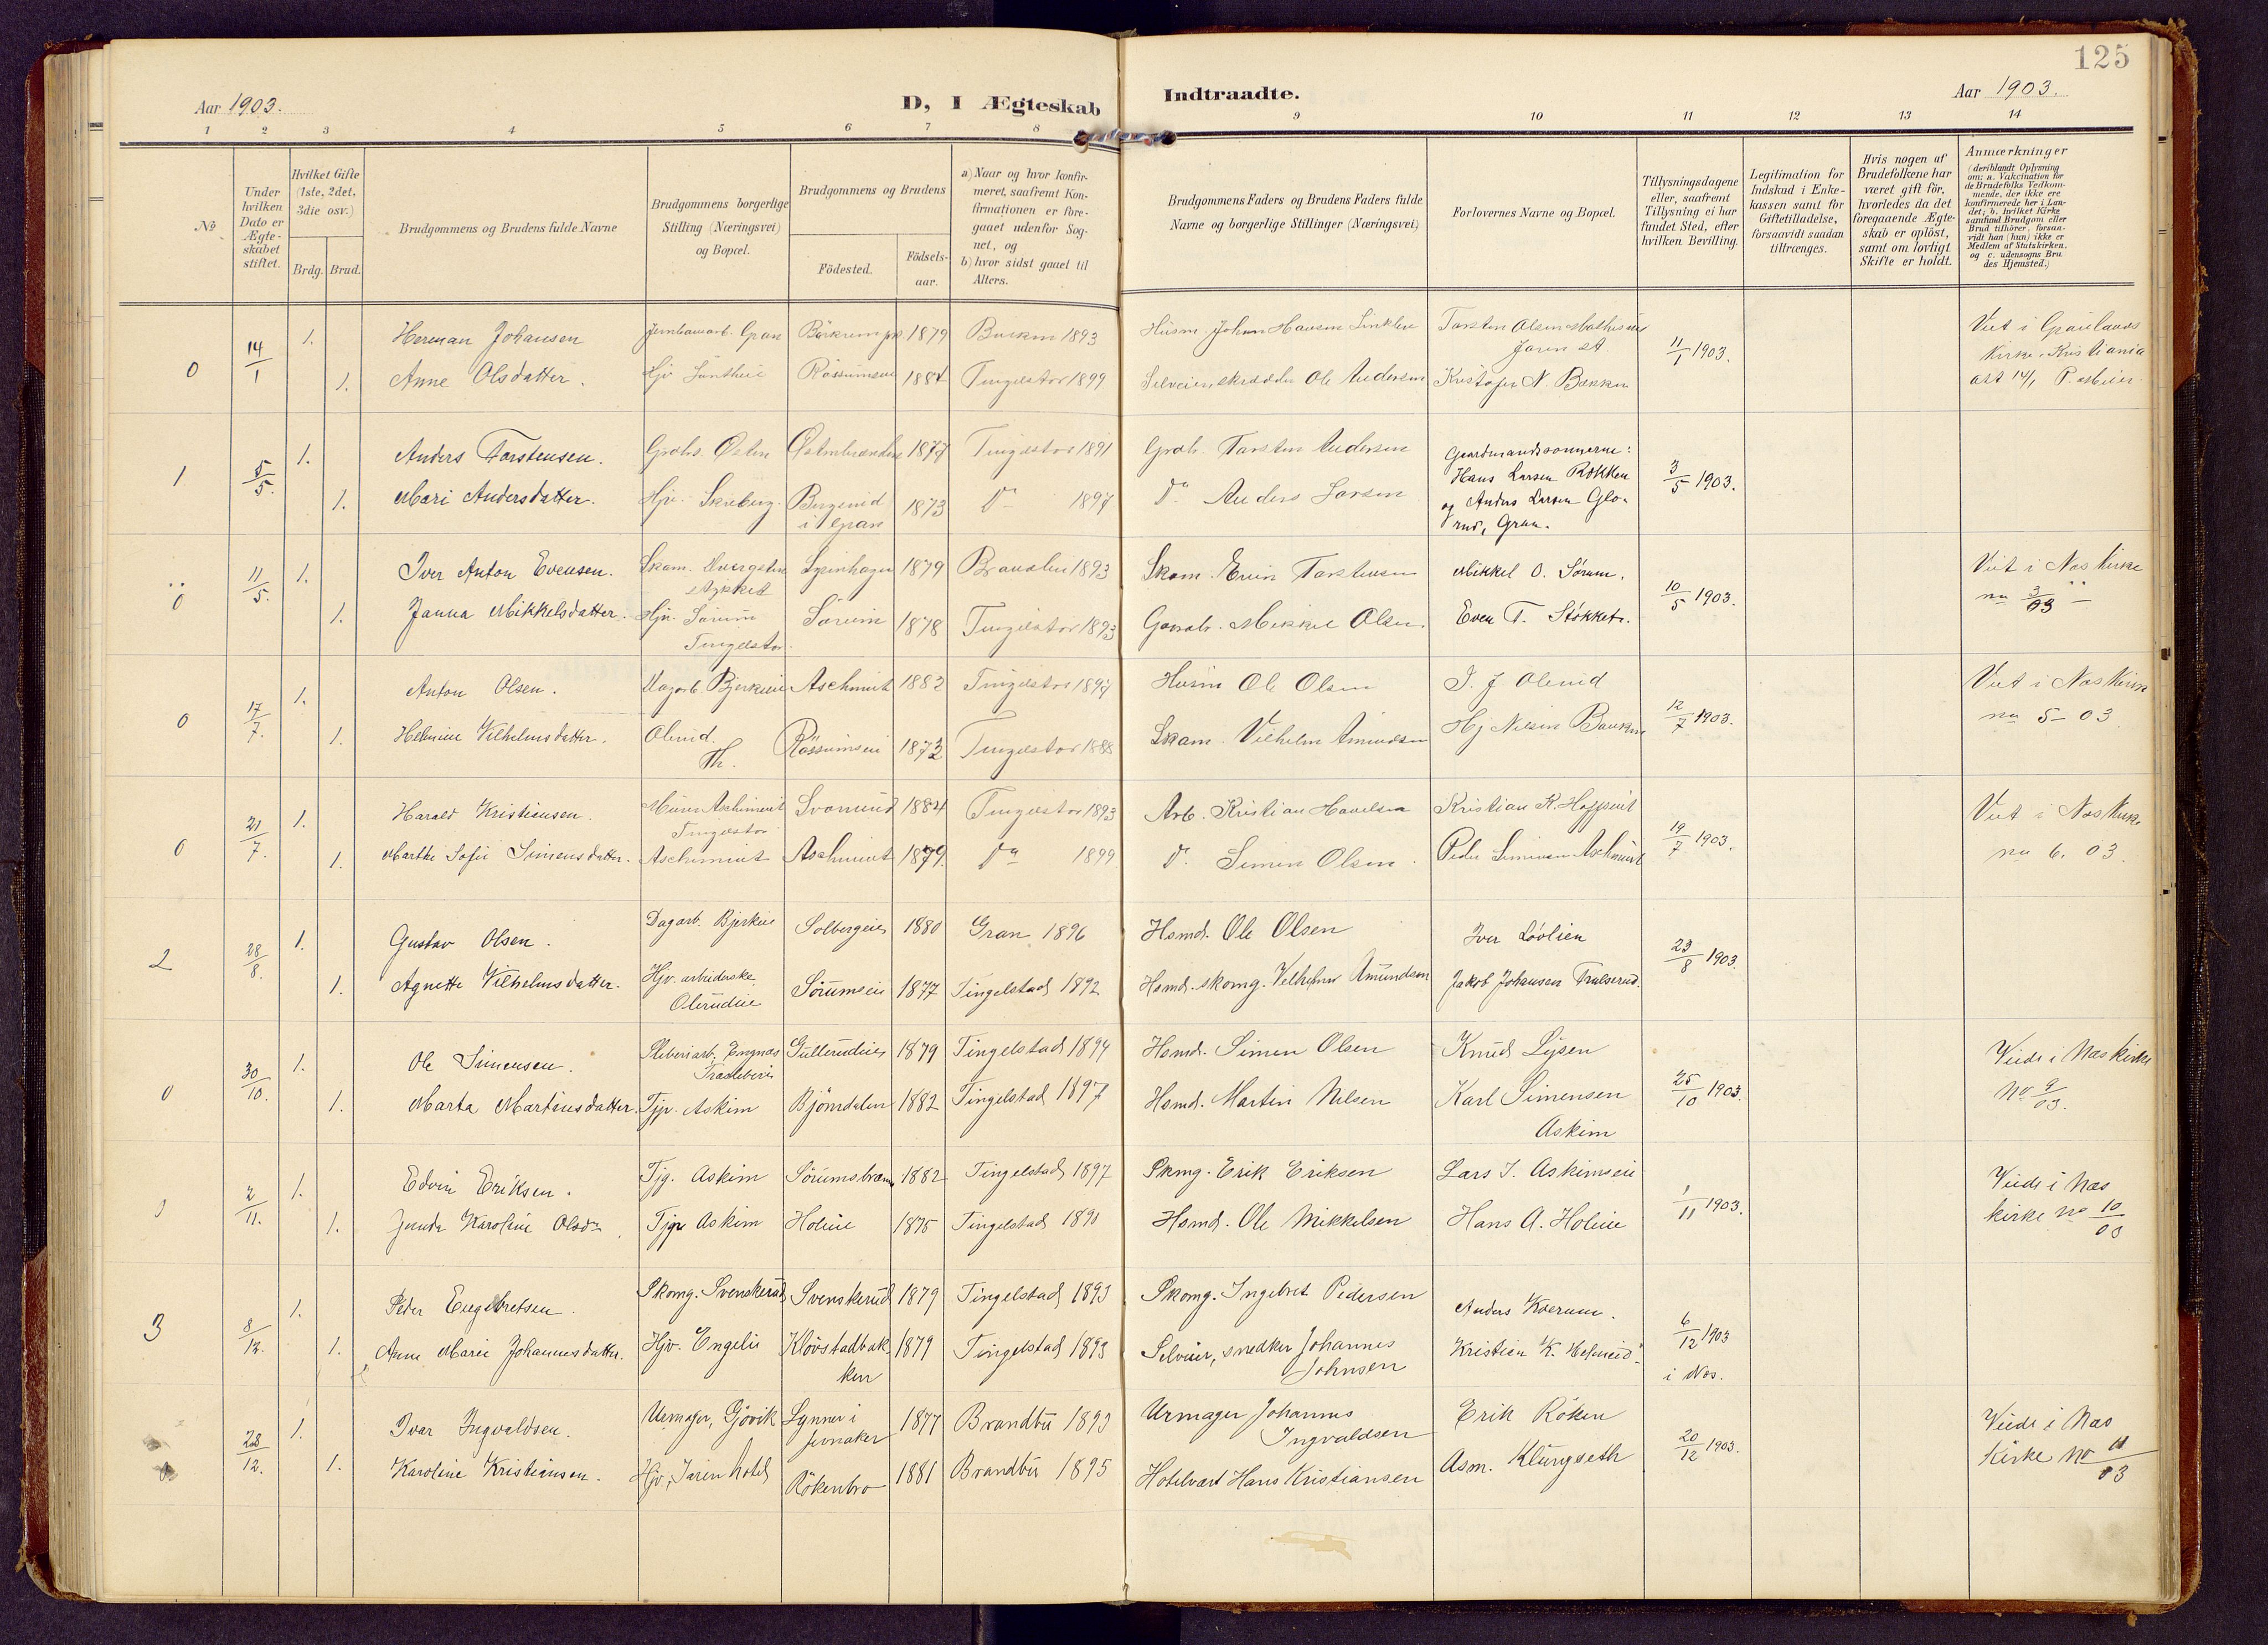 125
Aar 1903.
D, I Ægteskab
Indtraadte.
Aar 1903.
1 2 3 4 5 6 7 8 9 10 11 12 13 14
No
Under
hvilken
Dato er
Ægte-
skabet
stiftet.
Hvilket Gifte
(1ste, 2det,
3die osv.)
Brdg. Brud.
Brudgommens og Brudens fulde Navne
Brudgommens borgerlige
Stilling (Næringsvei)
og Bopæl.
Brudgommens og Brudens
Födested.
Födsels-
aar.
a) Naar og hvor konfir-
meret, saafremt Kon-
firmationen er fore-
gaaet udenfor Sog-
net, og
b) hvor sidst gaaet til
Alters.
Brudgommens Faders og Brudens Faders fulde
Navne og borgerlige Stillinger (Næringsvei)
Forlovernes Navne og Bopæl.
Tillysningsdagene
eller, saafremt
Tillysning ei har
fundet Sted, efter
hvilken Bevilling.
Legitimation for
Indskud i Enke-
kassen samt for
Giftetilladelse,
forsaavidt saadan
tiltrænges.
Hvis nogen af
Brudefolkene har
været gift för,
hvorledes da det
foregaaende Ægte-
skab er oplöst,
samt om lovligt
Skifte er holdt.
Anmærkninger
(deriblandt Oplysning
om: a. Vakcination for
de Brudefolks Vedkom-
mende, der ikke ere
konfirmerede her i Lan-
det; b. hvilket Kirke-
samfund Brudgom eller
Brud tilhörer, forsaa-
vidt han (hun) ikke er
Medlem af Statskirken,
og c. udensogns Bru-
des Hjemsted.)
0 14/1 1. Herman Johansen Jernbanearb. Gran 1879 1893 Husm. Johan Hansen Torsten Olsen
Jaren st 11/1 1903. Viet i Grønlands
Kirke, Kristiania
1. Anne Olsdatter. Hjv 1884 Tingelstad 1899 Selveierskrædder Ole Andersen Kristofer N. Bækken att 14/1
1 5/5. 1. Anders Torstensen. Grdbr. Østen 1877 Tingelstad 1891 Grdbr. Torsten Andersen Gaardmandssønnerne:
Hans Larsen Røkken 3/5 1903.
1. Mari Andersdatter. Hjv. Skiaberg.
i Gran 1873 Do 1897 Do Anders Larsen og Anders Larsen Glo-
rud, Gran.
0 11/5. 1. Iver Anton Evensen. Skom. 1879 Brandbu 1893 Skom. Even Torstensen Mikkel O. Sørum. 10/5 1903. Viet i Næs Kirke
no 3/03
1. Janna Mikkelsdatter. Hjv. Sørum
Tingelstad. Sørum 1878 Tingelstad 1893 Gaardbr. Mikkel Olsen. Even T. Støkket.
0 17/7. 1. Anton Olsen. Dagarb. Bjerkeeie 1882 Tingelstad 1897 Husm Ole Olsen 12/7 1903. Viet i Næs Kirke
no 5-03
1. Helmine Vilhelmsdatter. Olerud
Th. 1873 Tingelstad 1888 Skom. Vilhelm Amundsen Hj Nilsen
0 21/7. 1. Harald Kristiansen. Tingelstad 1884 Tingelstad 1893 Arb. Kristian Kristian K. 19/7 1903. Viet i Næs Kirke
no 6. 03.
1. Marthe Sofie Simensdatter. 1879. Do 1899 Do Simen Olsen. Peder Simensen
2 28/8. 1. Gustav Olsen. Dagarb. Bjerkeie Solbergeie 1880 Gran 1896 Hsmd. Ole Olsen Iver Lövlien 23/8 1903.
1. Agnette Vilhelmsdatter. Hjv. arbeiderske.
Olerudeie Sörumseie 1877 Tingelstad 1892 Hsmd. skomg. Vilhelm Amundsen Jakob Johansen Trulserud.
0 30/10. 1. Ole Simensen. Sliberiarb. Engnæs
Træsliberi Gullerudeie 1879 Tingelstad 1894 Hsmd. Simen Olsen Knud Lysen 25/10 1903. Viede i Næs kirke
No 9/03.
1. Marta Martinsdatter. Tjp. Askim Björndalen 1882 Tingelstad 1897 Hsmd. Martin Nilsen Karl Simensen
Askim
0 2/11. 1. Edvin Eriksen. Tjg. Askim 1882 Tingelstad 1897 Skmg. Erik Eriksen Lars J. Askimseie 1/11 1903. Viede i Næs
kirke No 10/03
1. Karoline Olsdr. Tjp Askim Holeie 1875 Tingelstad 1890 Hsmd. Ole Mikkelsen Hans A. Holeie
3 8/12. 1. Peder Engebretsen. Skomg. Svenskerud Svenskerud 1879 Tingelstad 1893 Skomg. Ingebret Pedersen Anders Kværum. 6/12 1903
i Næs.
1. Anne Marie Johannesdatter. Hjv. Engelie Klövstadbak-
ken 1879 Tingelstad 1893 Selveier, snedker Johannes
Johnsen Kristian K.
28/12. 1. Ivar Ingvaldsen. Urmager, Gjövik Lynner i
Jevnaker 1877 Brandbu 1893 Urmager Johannes
Ingvaldsen Erik Röken 20/12 1903. Viede i Næs
Kirke No 11/03
1. Karoline Kristiansen. Hjv., Jaren hotel Rökenbro 1881 Brandbu 1895 Hotelvært Hans Kristiansen Asm. Klungseth